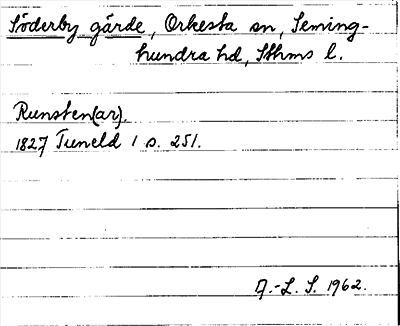 Söderby gärde, Orkesta sn, Seming-
hundra hd, Sthms l.
Runsten(ar).
1827 Tuneld 1 s. 251.
A.-L. S. 1962.